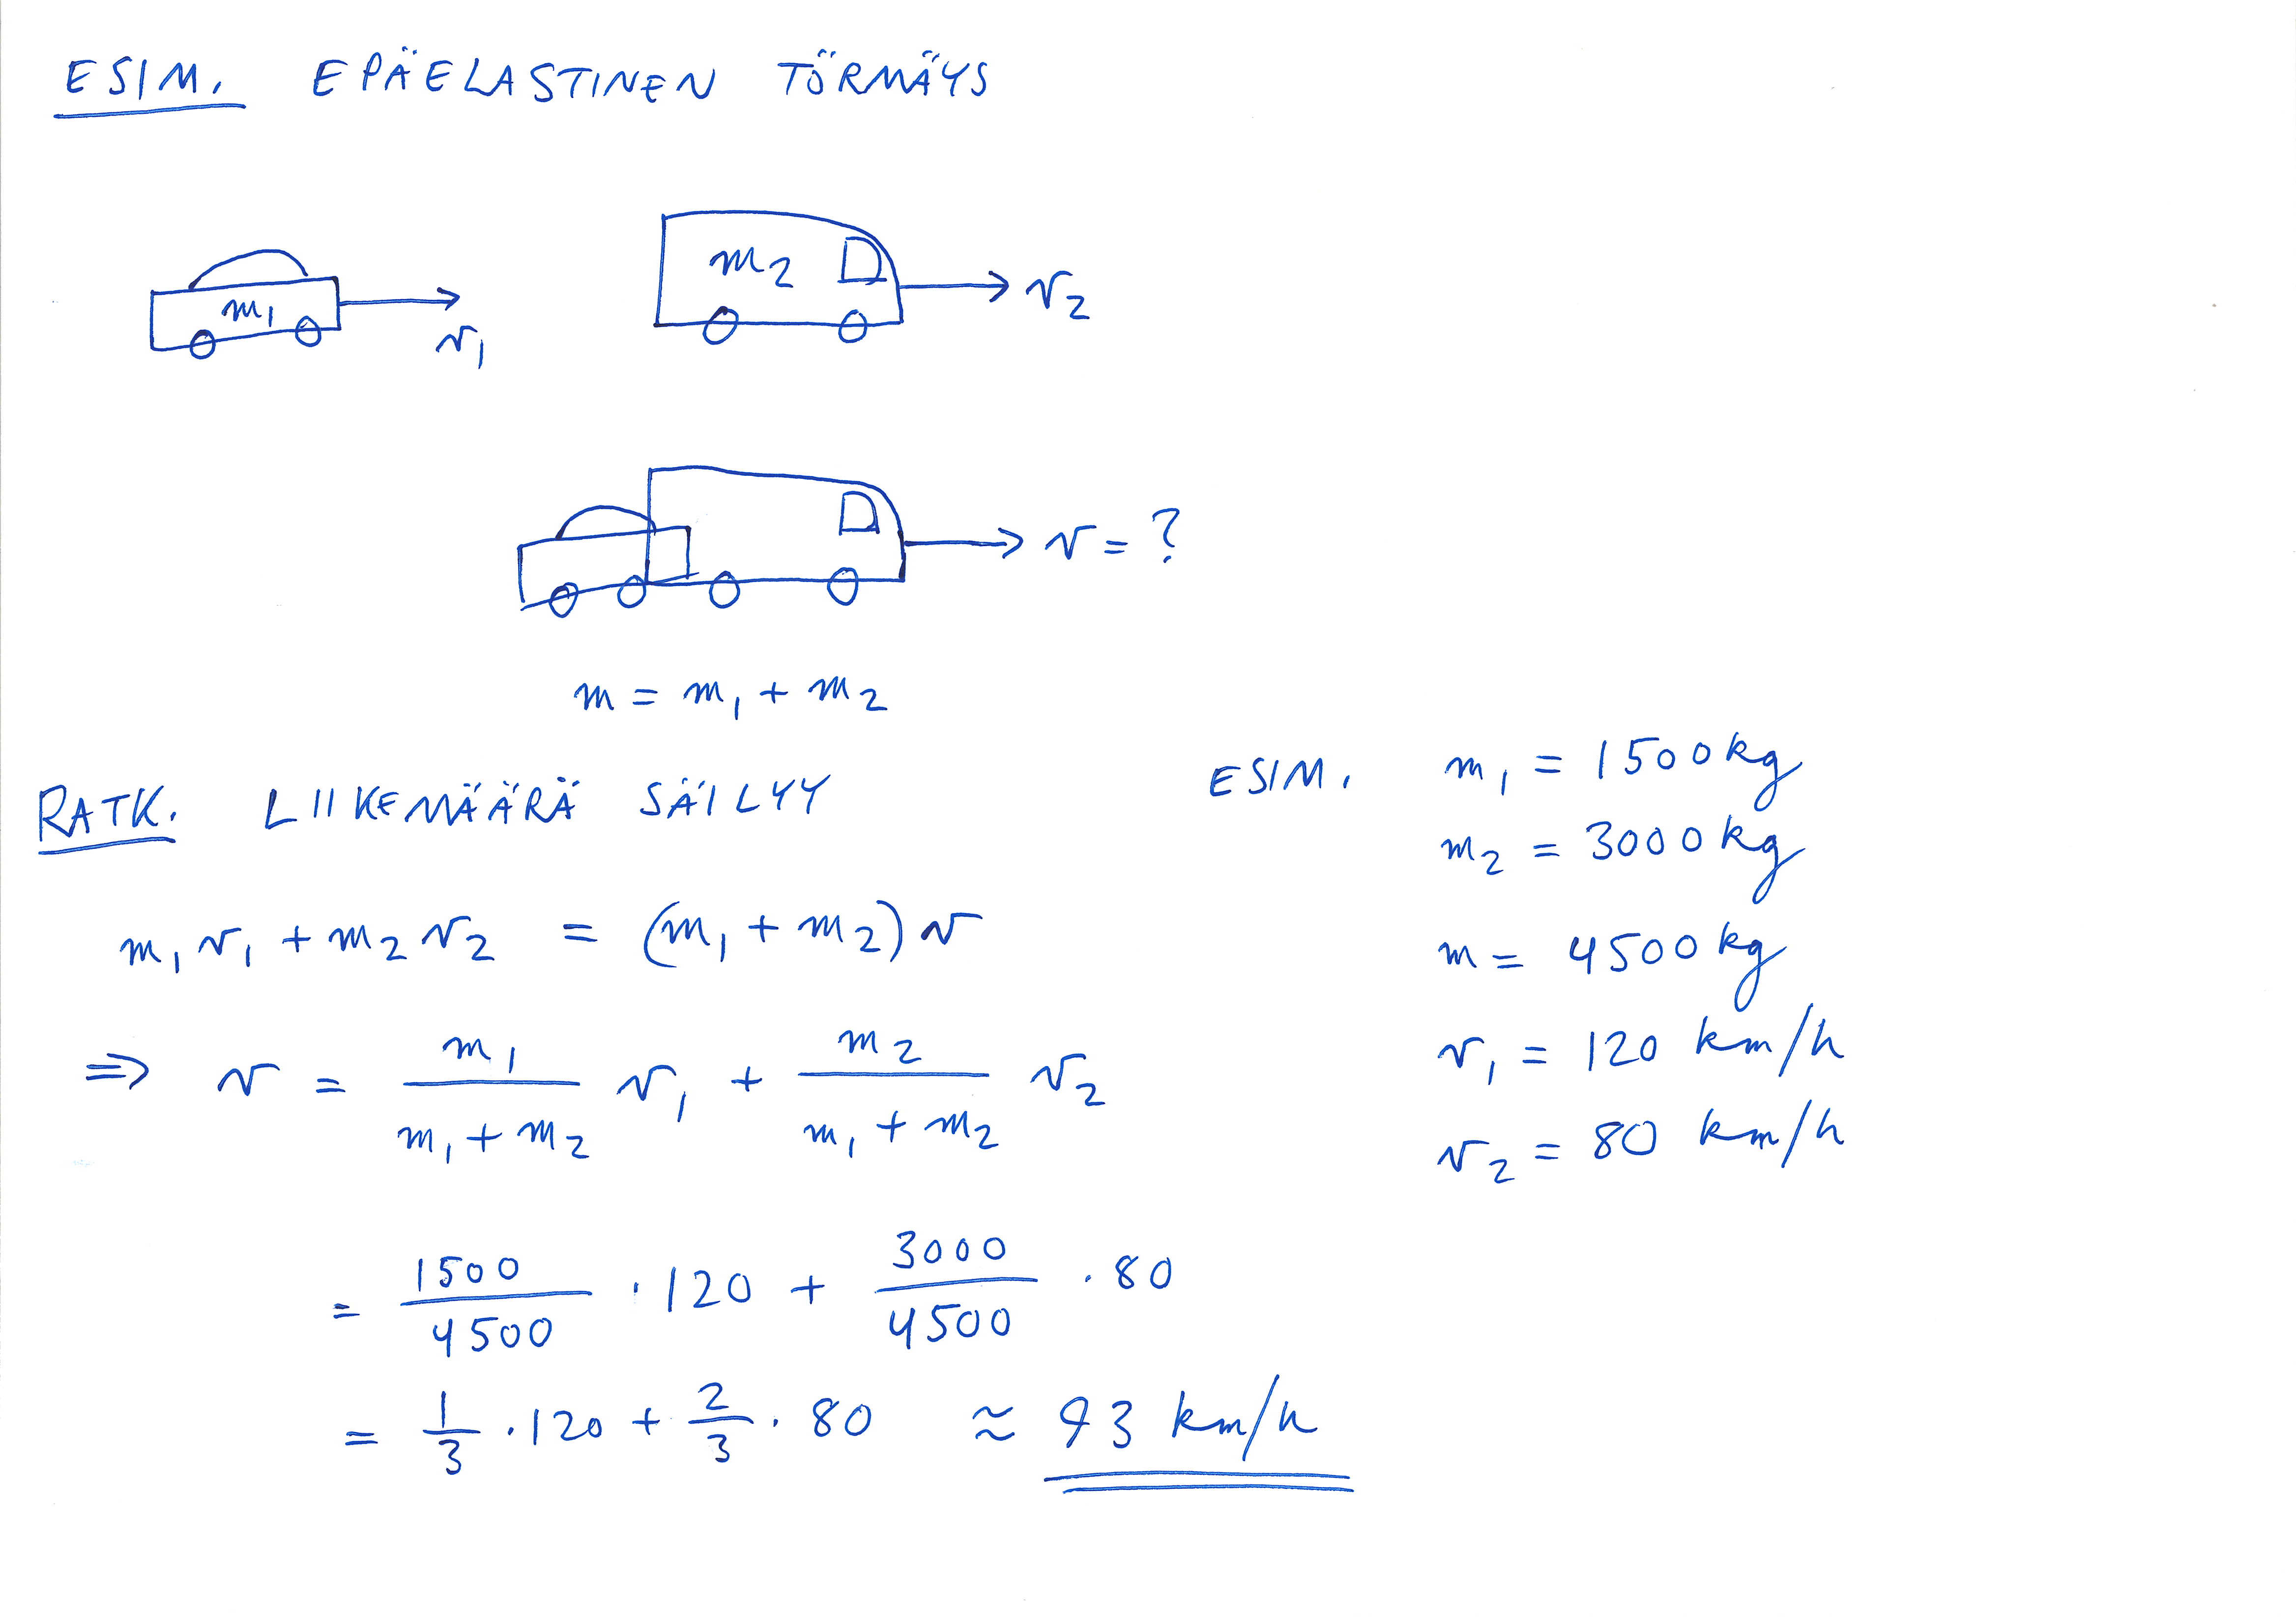 ESIM. EPÄELASTINEN TÖRMÄYS
m₁ v₁
m₂ v₂
v = ?
m = m₁ + m₂
RATK. LIIKEMÄÄRÄ SÄILYY
m₁v₁ + m₂v₂ = (m₁ + m₂)v
⇒ v = m₁/(m₁ + m₂) v₁ + m₂/(m₁ + m₂) v₂
= 1500/4500 · 120 + 3000/4500 · 80
= 1/3 · 120 + 2/3 · 80 ≈ 93 km/h
ESIM. m₁ = 1500 kg
m₂ = 3000 kg
m = 4500 kg
v₁ = 120 km/h
v₂ = 80 km/h